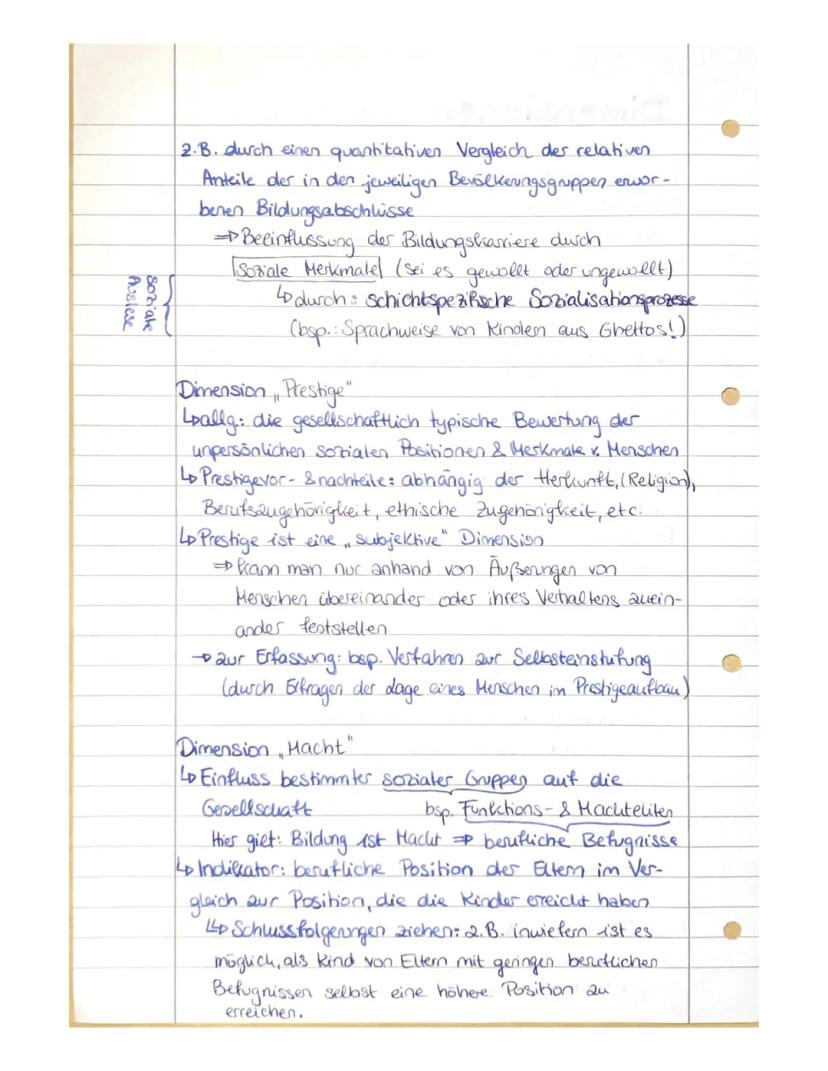 z.B. durch einen quantitativen Vergleich der relativen
Anteile der in den jeweiligen Bevölkerungsgruppen erwor-
benen Bildungsabschlüsse
⇒ Beeinflussung der Bildungskarriere durch
soziale Merkmale (sei es gewollt oder ungewollt)
↳ durch: schichtspezifische Sozialisationsprozesse
(bsp.: Sprachweise von Kindern aus Ghettos!)
soziale
Auslese
Dimension „Prestige"
↳ allg: die gesellschaftlich typische Bewertung der
unpersönlichen sozialen Positionen & Merkmale v. Menschen
↳ Prestigevor- & nachteile: abhängig der Herkunft, (Religion),
Berufszugehörigkeit, ethische Zugehörigkeit, etc.
↳ Prestige ist eine „subjektive" Dimension
⇒ kann man nur anhand von Äußerungen von
Menschen übereinander oder ihres Verhaltens zuein-
ander feststellen
→ zur Erfassung: bsp. Verfahren zur Selbsteinstufung
(durch Erfragen der Lage eines Menschen im Prestigeaufbau)
Dimension „Macht"
↳ Einfluss bestimmter sozialer Gruppen auf die
Gesellschaft bsp. Funktions- & Machteliten
Hier gilt: Bildung ist Macht ⇒ berufliche Befugnisse
↳ Indikator: berufliche Position der Eltern im Ver-
gleich zur Position, die die Kinder erreicht haben
↳ Schlussfolgerungen ziehen: z.B. inwiefern ist es
möglich, als Kind von Eltern mit geringen beruflichen
Befugnissen selbst eine höhere Position zu
erreichen.